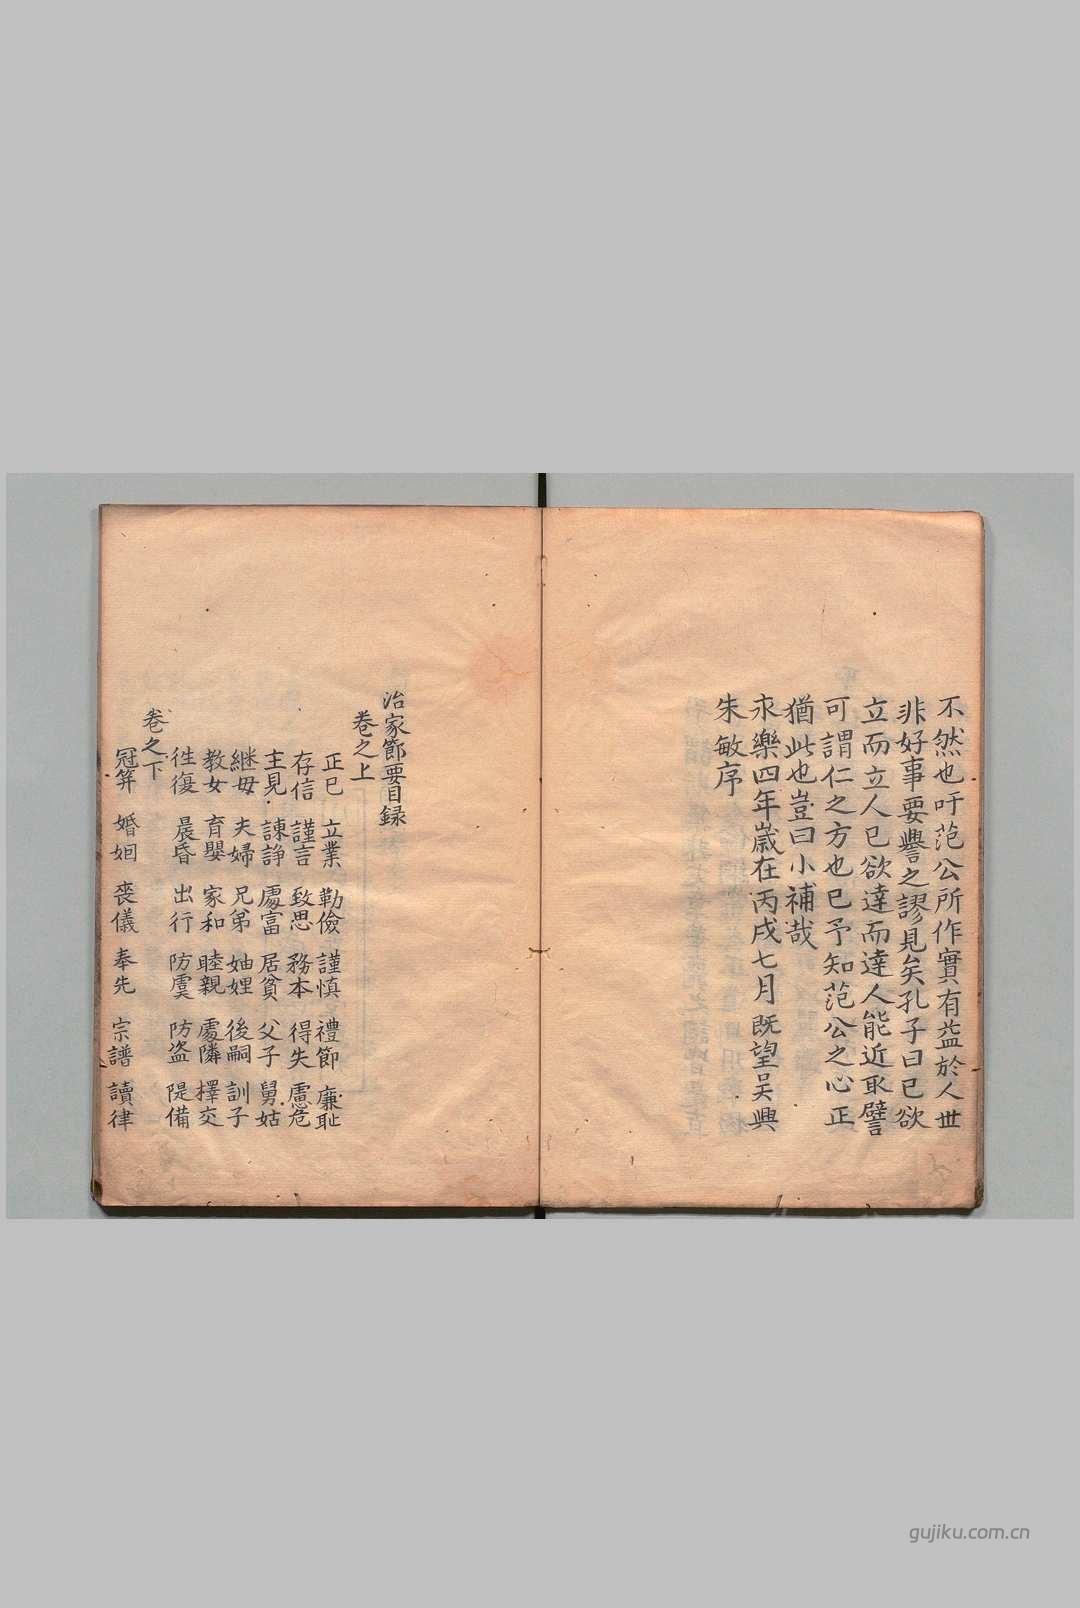 不然也吁范公所作實有益於人世
非好事要譽之謬見矣孔子曰已欲
立而立人已欲達而達人能近取譬
可謂仁之方也已予知范公之心正
猶此也豈曰小補哉
永樂四年歲在丙戌七月既望吴興
朱敏序
治家節要目録
卷之上
正巳 立業 勤儉 謹慎 禮節 廉耻
存信 謹言 致思 務本 得失 慮危
主見 諫諍 處富 居貧 父子 舅姑
継母 夫婦 兄弟 妯娌 後嗣 訓子
教女 育嬰 家和 睦親 處隣 擇交
徃復 晨昏 出行 防虞 防盗 隄備
卷之下
冠笄 婚姻 喪儀 奉先 宗譜 讀律
gujiku.com.cn